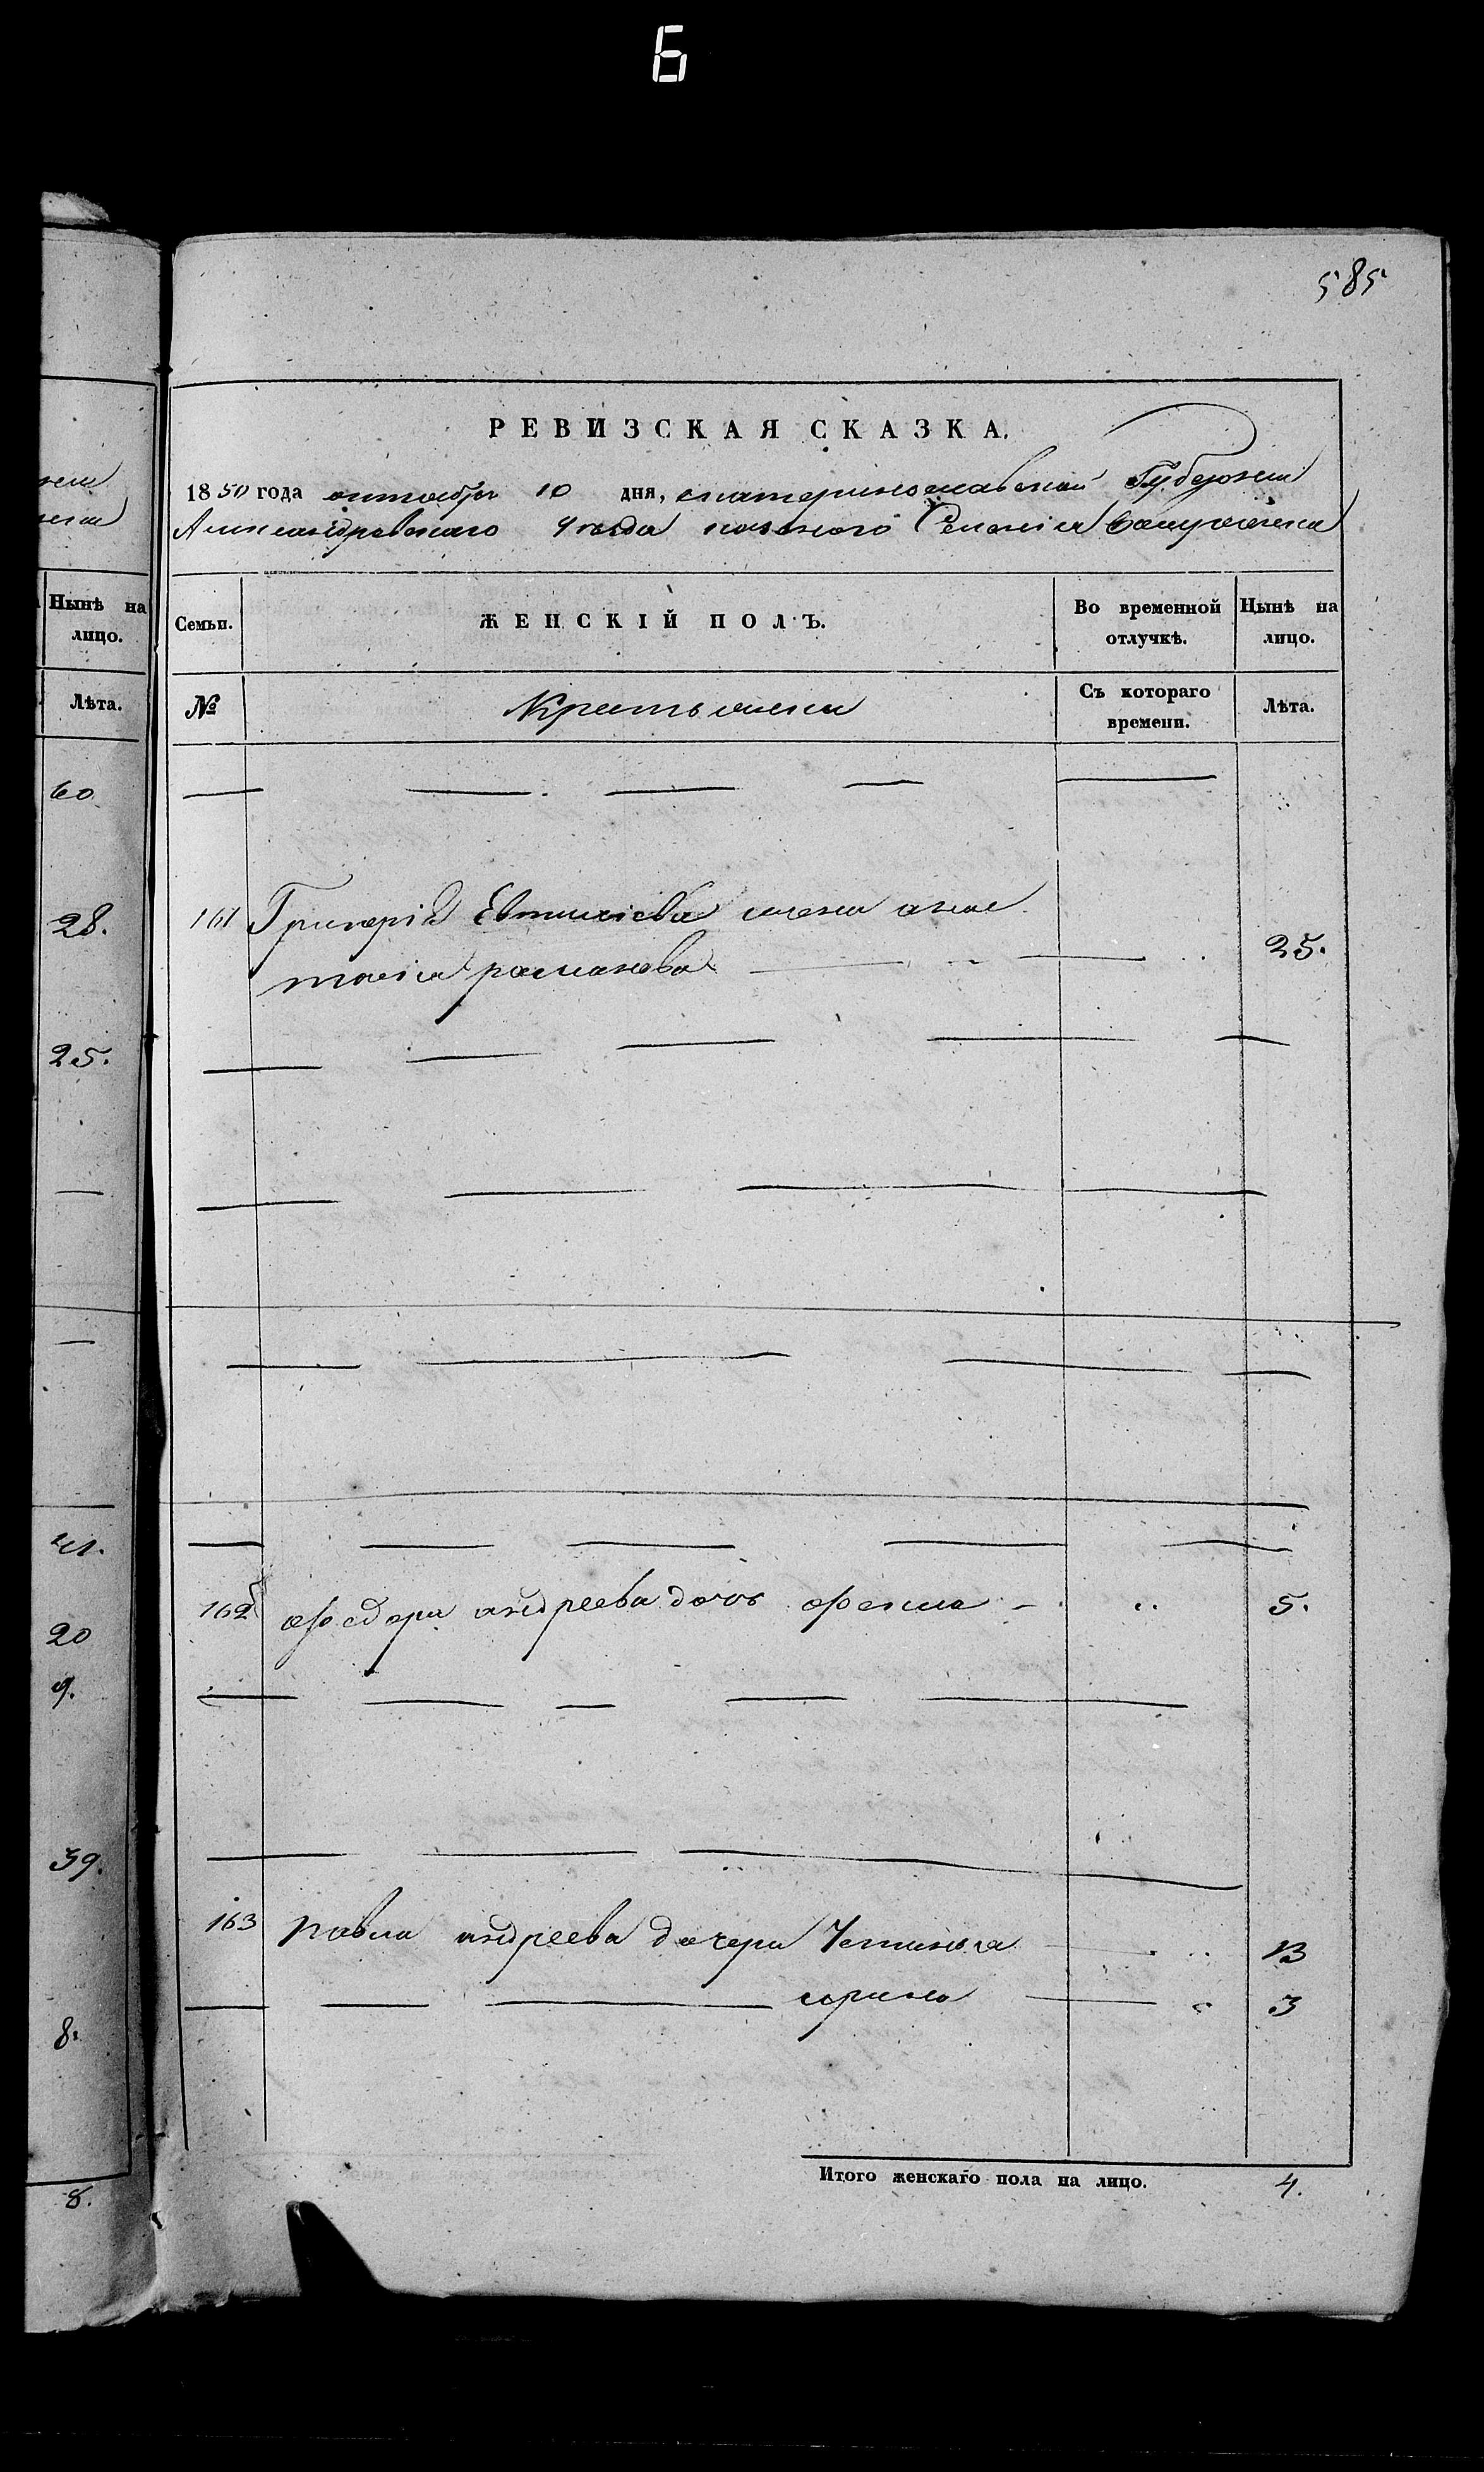 6
585
РЕВИЗСКАЯ СКАЗКА.
1850 года октября 10 дня, екатеринославской Губернии
Александровскаго уезда казеного Селенiя
Нынѣ на лицо.
Лѣта.
60
28.
25.
—
—
41.
20
9.
39.
8.
8.
Семьи.
ЖЕНСКІЙ ПОЛЪ.
Во временной отлучкѣ.
Нынѣ на лицо.
№
Крестьянки
Съ котораго времени.
Лѣта.
161 Григорія Евтихіева жена анас
тасія романова 25.
162 федора андреева дочь 5.
163 павла андреева дочери Устинья 13
ирина 3
Итого женскаго пола на лицо. 4.